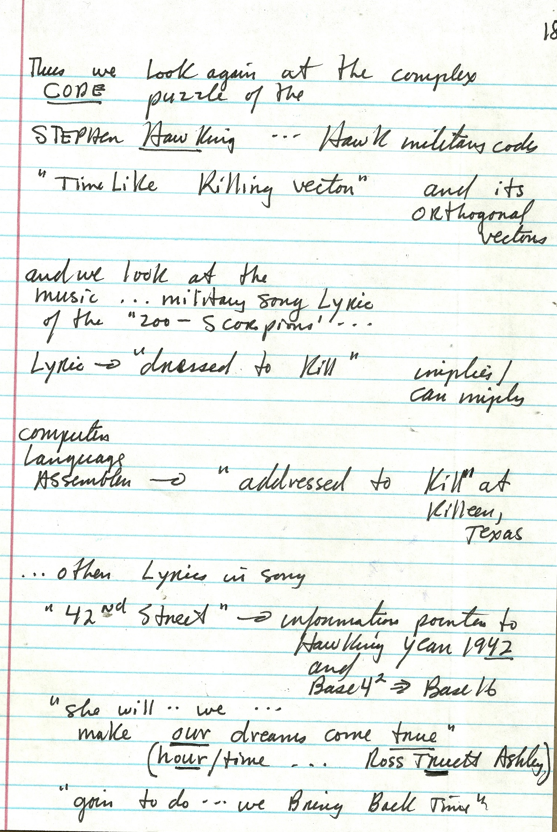 18
Thus we look again at the complex
CODE puzzle of the
STEPHEN HawKing ... Hawk military code
"TimeLike Killing vector" and its
orthogonal
vectors
and we look at the
music ... military song Lyric
of the "200 - Scorpions" ...
Lyric → "dressed to Kill" implies/
can imply
computer
Language
Assembler → "addressed to Kill" at
Killeen,
Texas
... other Lyrics in song
"42nd Street" → information pointer to
HawKing year 1942
and
Base 4² ⇒ Base 16
"she will .. we ...
make our dreams come true"
(hour/time ... Ross Truett Ashley)
"goin to do ... we Bring Back Time"